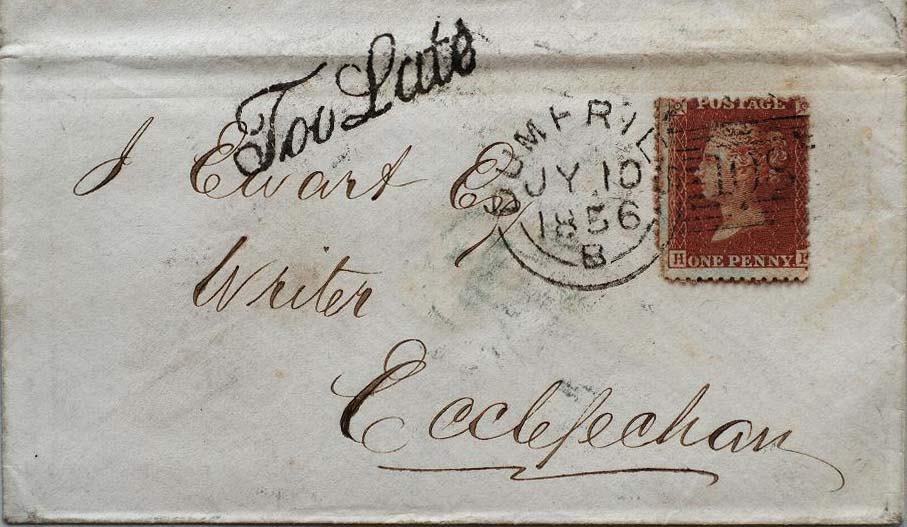 Too Late
J Ewart Esq
Writer
Ecclefechan
DUMFRIES
JY 10
1856
B
POSTAGE
108
H ONE PENNY